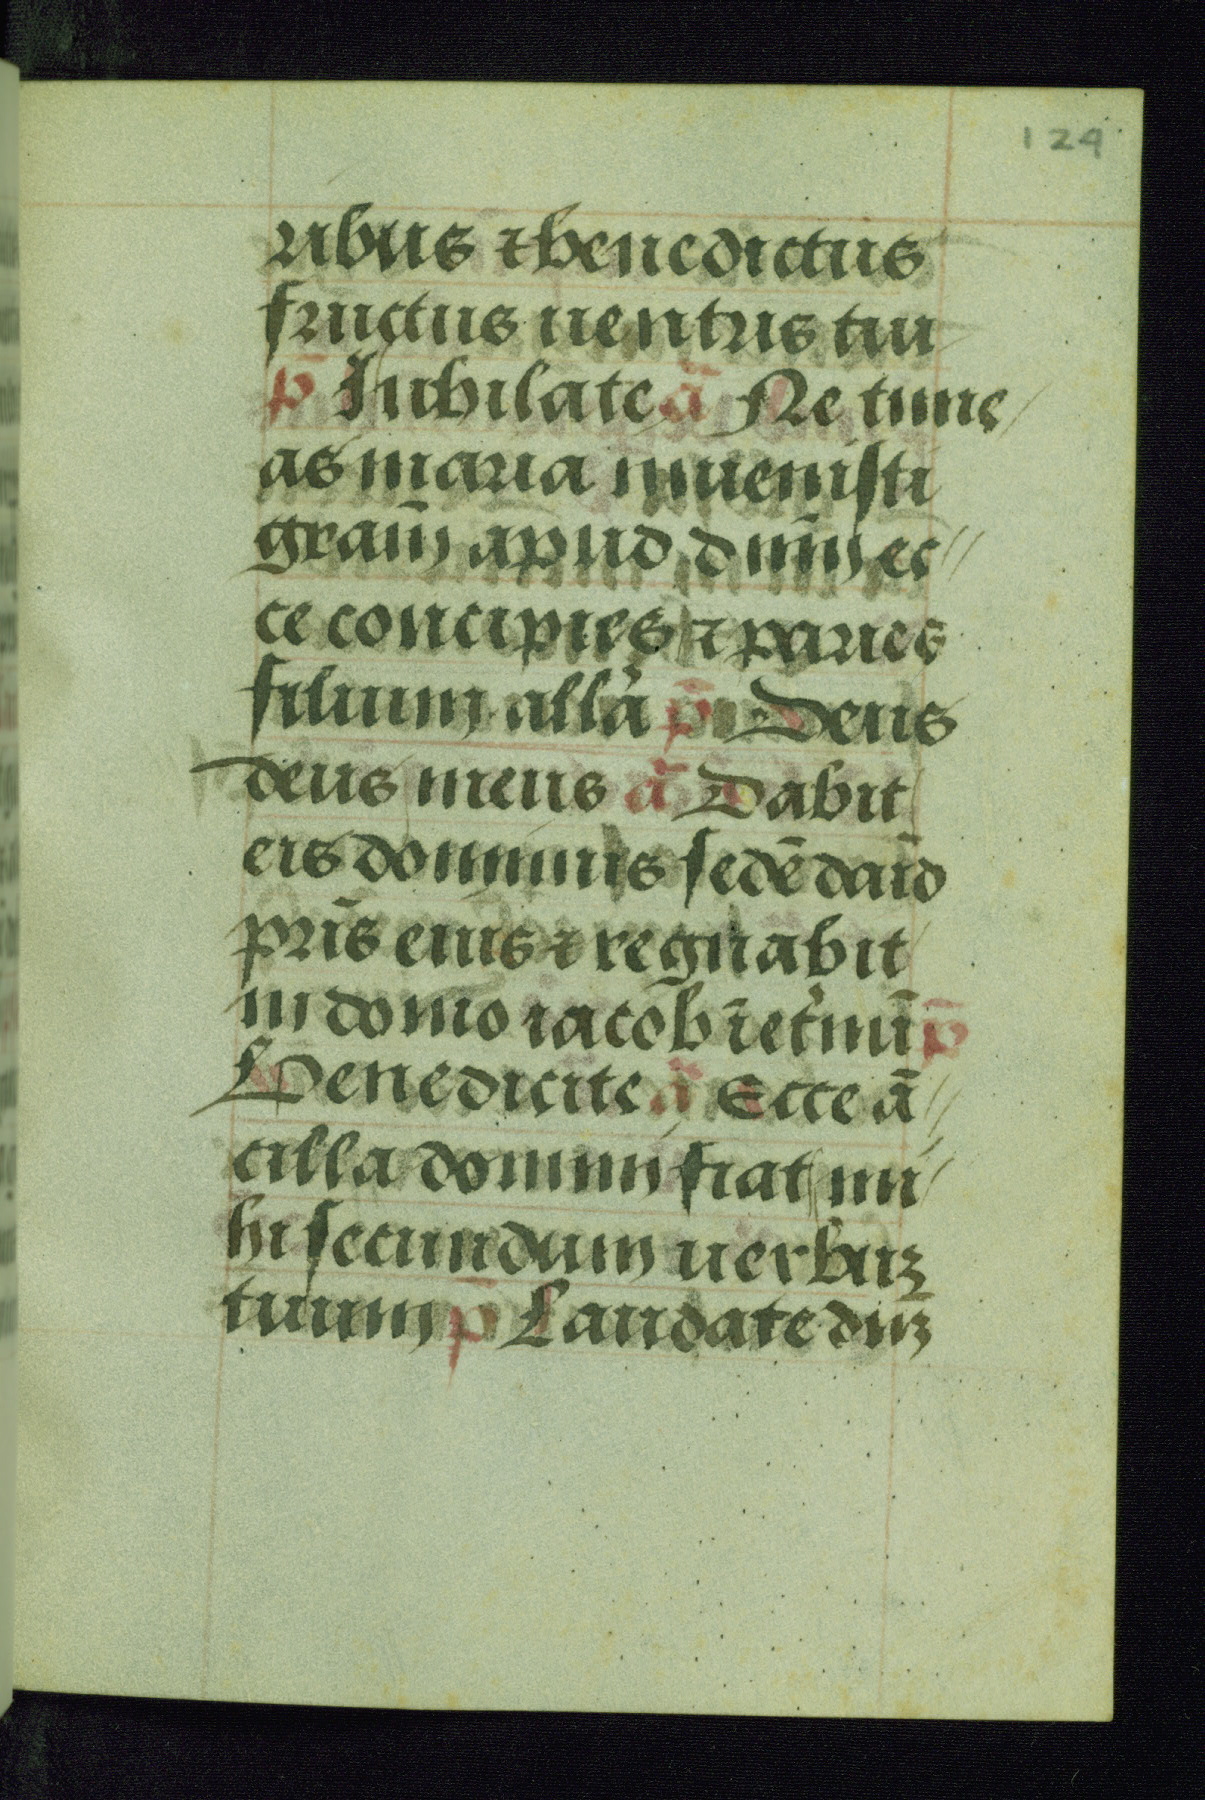 129
ribus ⁊ benedictus
fructus uentris tui
p̄ Jubilate ā Ne time
as maria inuenisti
gr̄am apud dn̄m ec
ce concipies ⁊ paries
filium all̓a p̄ Deus
deus meus ā Dabit
eis dominus sedē dauid
pr̄is eius ⁊ regnabit
in domo iacob ī et̓nū p̄
Benedicite ā Ecce ā
cilla domini fiat mi
hi secundum uerbuꝫ
tuum p̄ Laudate dn̄ꝫ